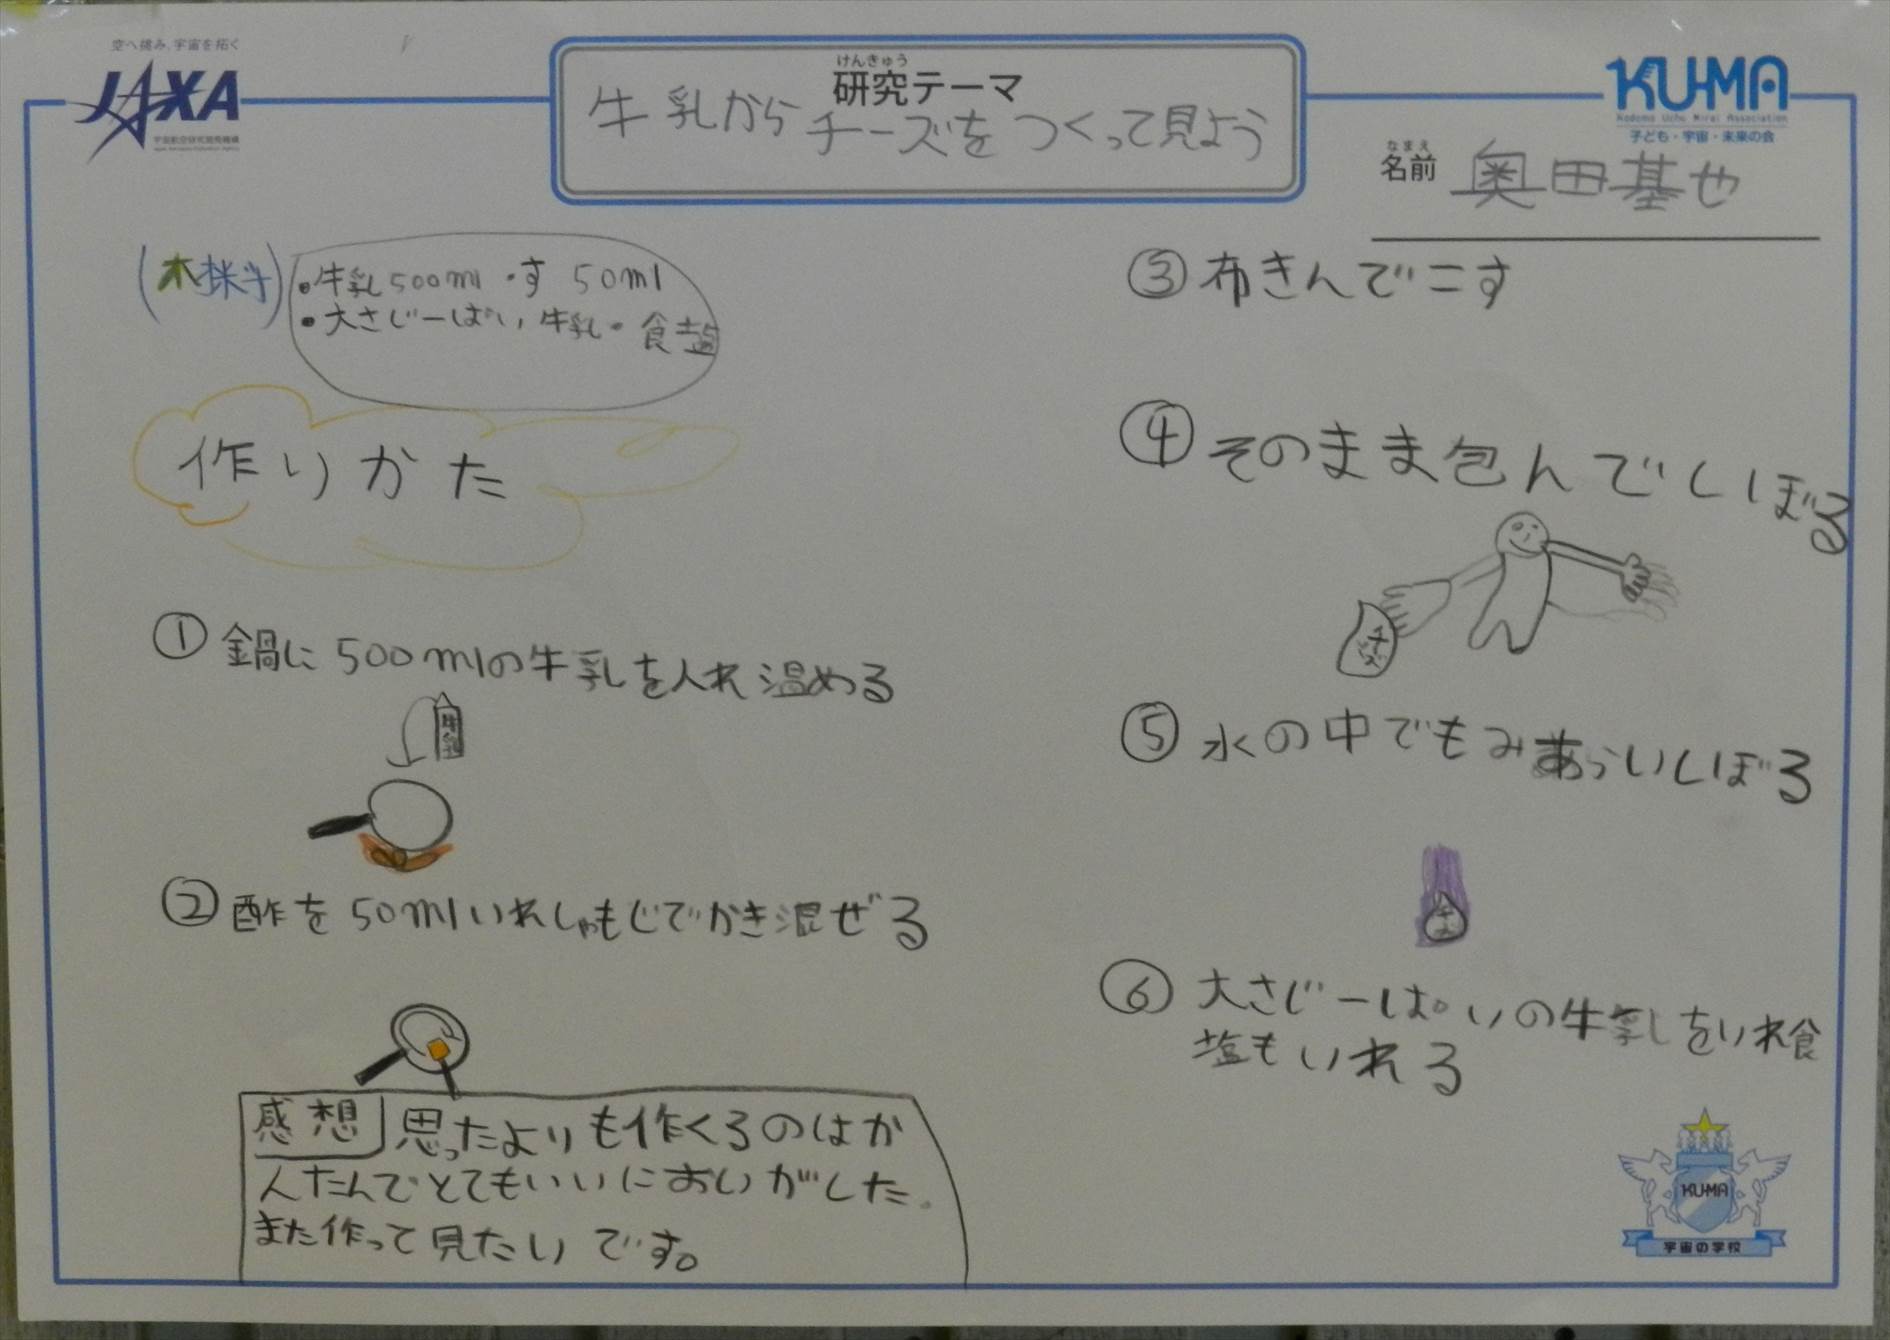 空へ挑み、宇宙を拓く
JAXA
宇宙航空研究開発機構
Japan Aerospace Exploration Agency
けんきゅう
研究テーマ
牛乳からチーズをつくって見よう
KU-MA
Kodomo Uchu Mirai Association
子ども・宇宙・未来の会
なまえ
名前 奥田基也
(材料)
・牛乳500ml ・す 50ml
・大さじ一ぱい牛乳・食塩
作りかた
①鍋に500mlの牛乳を入れ温める
牛乳
②酢を50mlいれしゃもじでかき混ぜる
感想 思ったよりも作くるのはか
んたんでとてもいいにおいがした。
また作って見たいです。
③布きんでこす
④そのまま包んでしぼる
チーズ
⑤水の中でもみあらいしぼる
チーズ
⑥大さじ一ぱいの牛乳をいれ食
塩もいれる
KU-MA
宇宙の学校